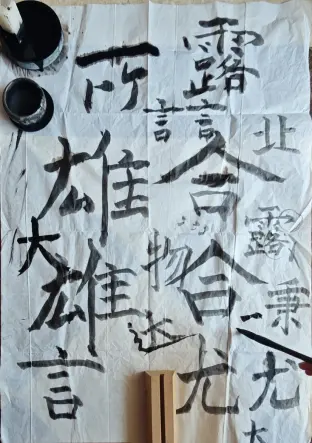 北露秉尤大
露言合合尤
言物达
所雄雄言
大